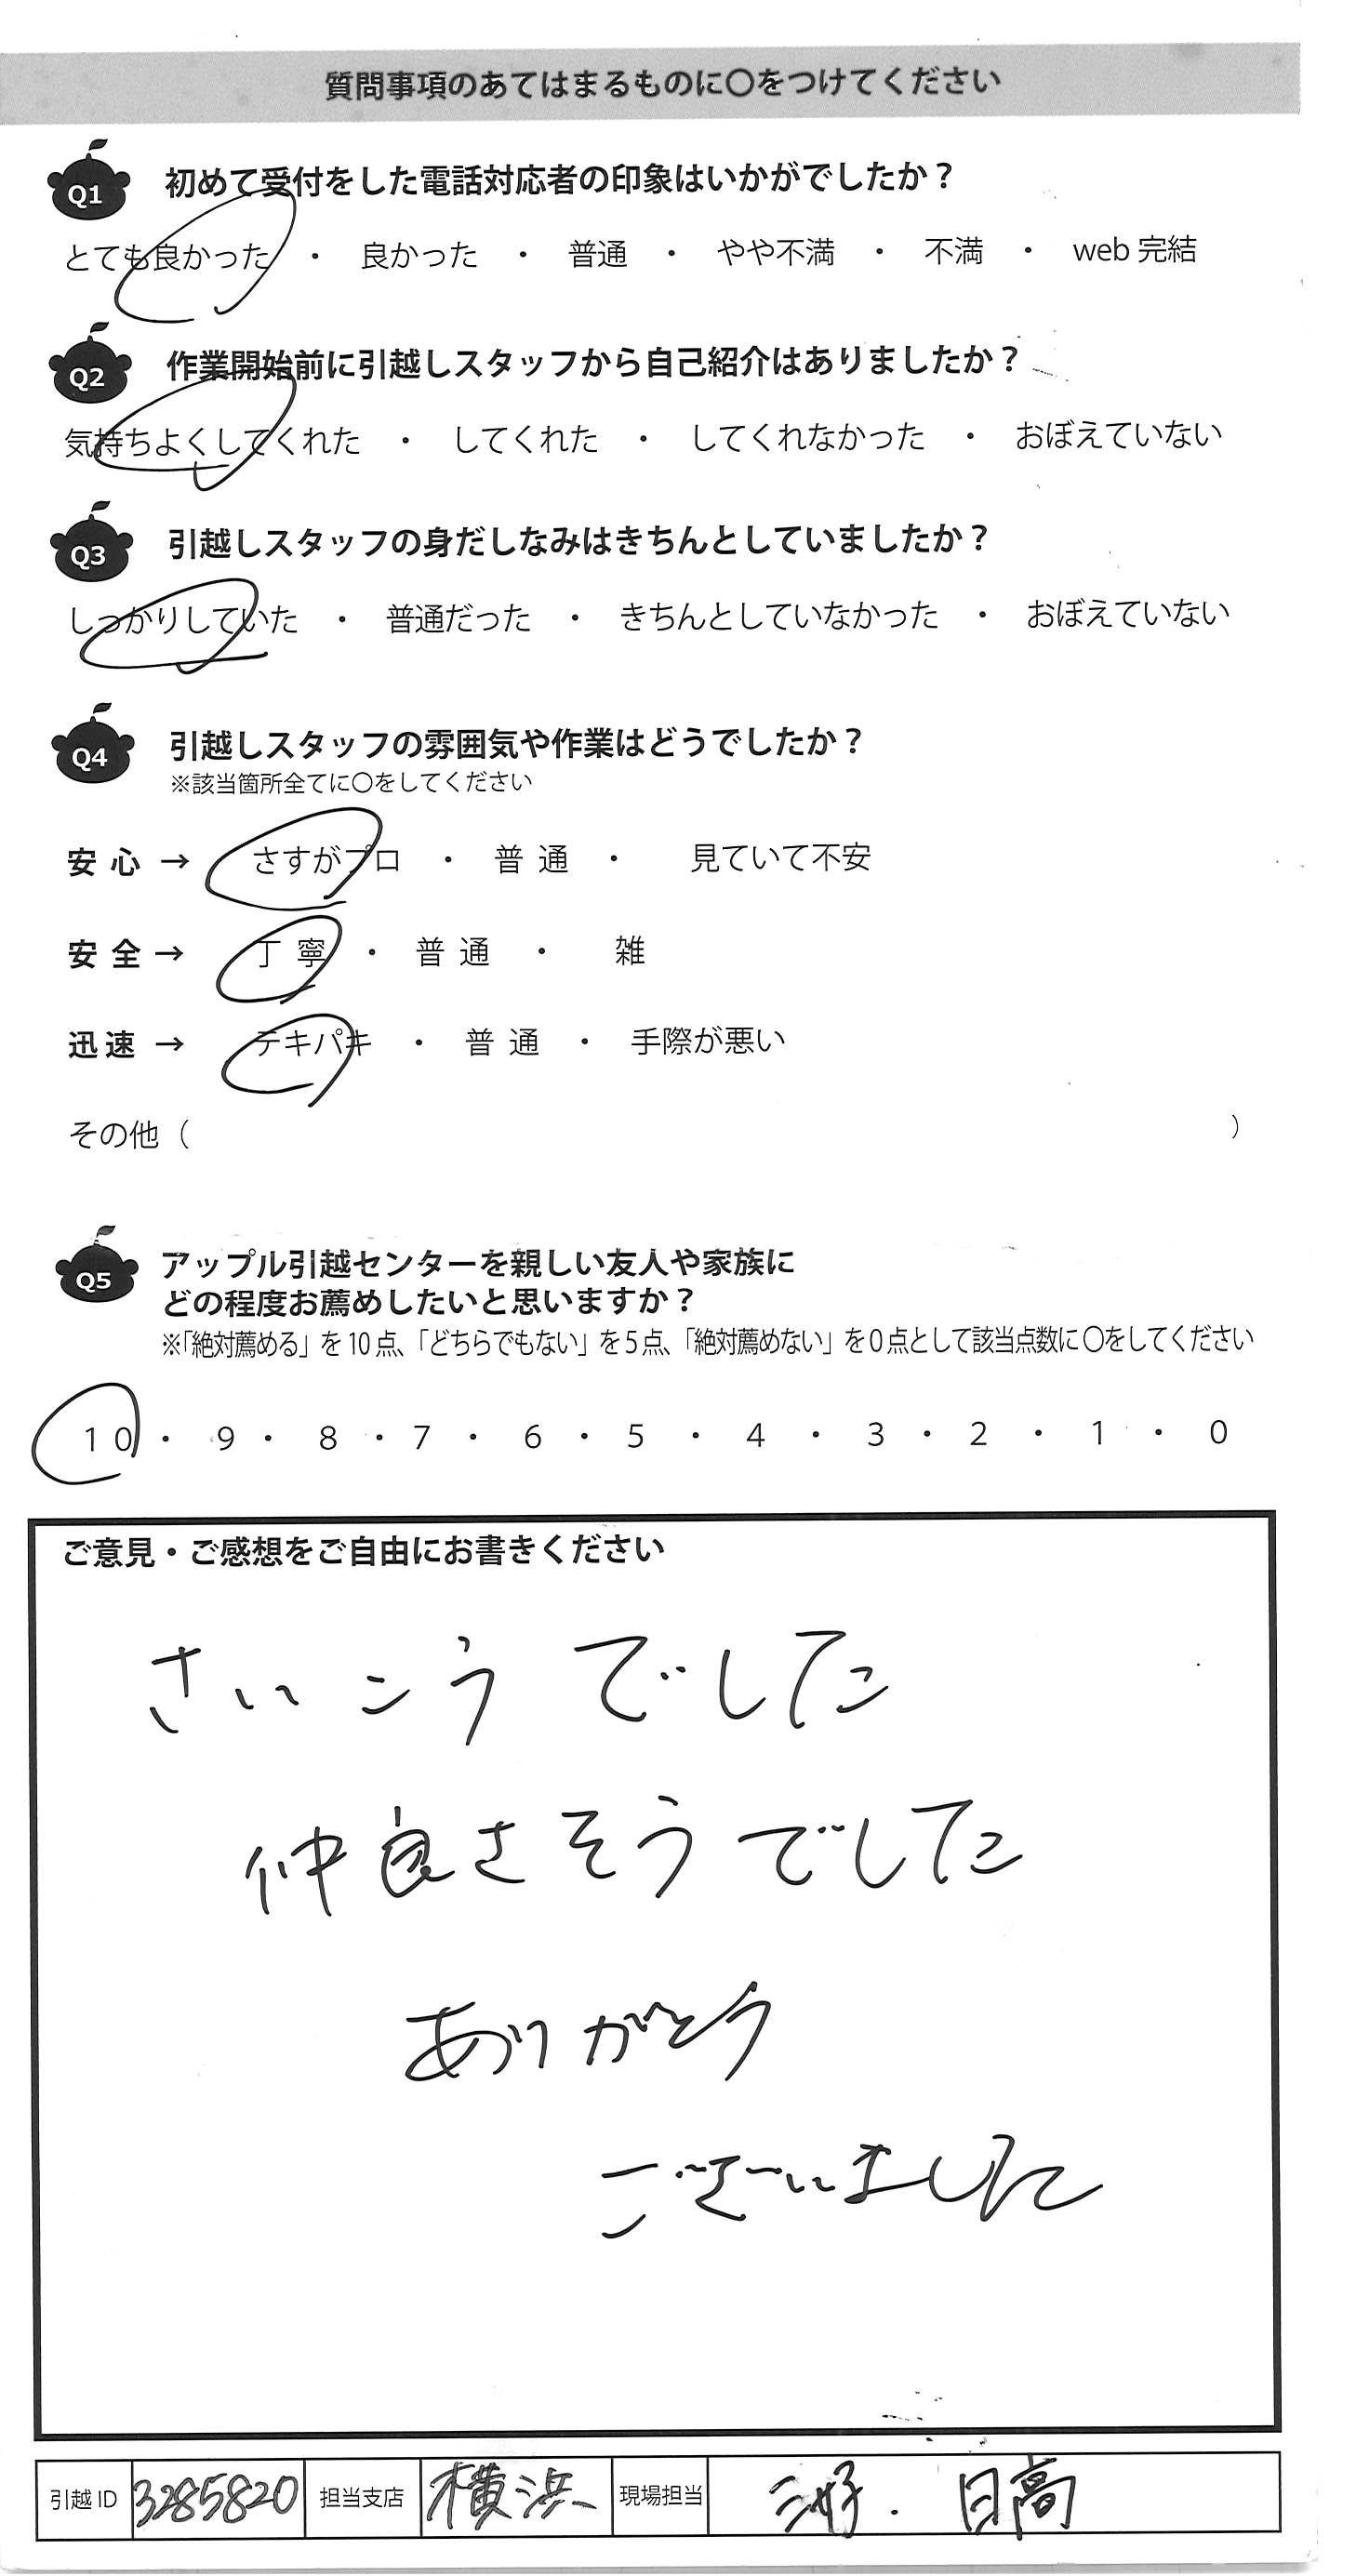 質問事項のあてはまるものに〇をつけてください
Q1 初めて受付をした電話対応者の印象はいかがでしたか？
とても良かった ・ 良かった ・ 普通 ・ やや不満 ・ 不満 ・ web 完結
Q2 作業開始前に引越しスタッフから自己紹介はありましたか？
気持ちよくしてくれた ・ してくれた ・ してくれなかった ・ おぼえていない
Q3 引越しスタッフの身だしなみはきちんとしていましたか？
しっかりしていた ・ 普通だった ・ きちんとしていなかった ・ おぼえていない
Q4 引越しスタッフの雰囲気や作業はどうでしたか？
※該当箇所全てに〇をしてください
安心 → さすがプロ ・ 普通 ・ 見ていて不安
安全 → 丁寧 ・ 普通 ・ 雑
迅速 → テキパキ ・ 普通 ・ 手際が悪い
その他（ ）
Q5 アップル引越センターを親しい友人や家族に
どの程度お薦めしたいと思いますか？
※「絶対薦める」を10点、「どちらでもない」を5点、「絶対薦めない」を0点として該当点数に〇をしてください
10 ・ 9 ・ 8 ・ 7 ・ 6 ・ 5 ・ 4 ・ 3 ・ 2 ・ 1 ・ 0
ご意見・ご感想をご自由にお書きください
さいこうでした
仲良さそうでした
ありがとう
ございました
引越ID 3285820 担当支店 横浜 現場担当 三好. 日高